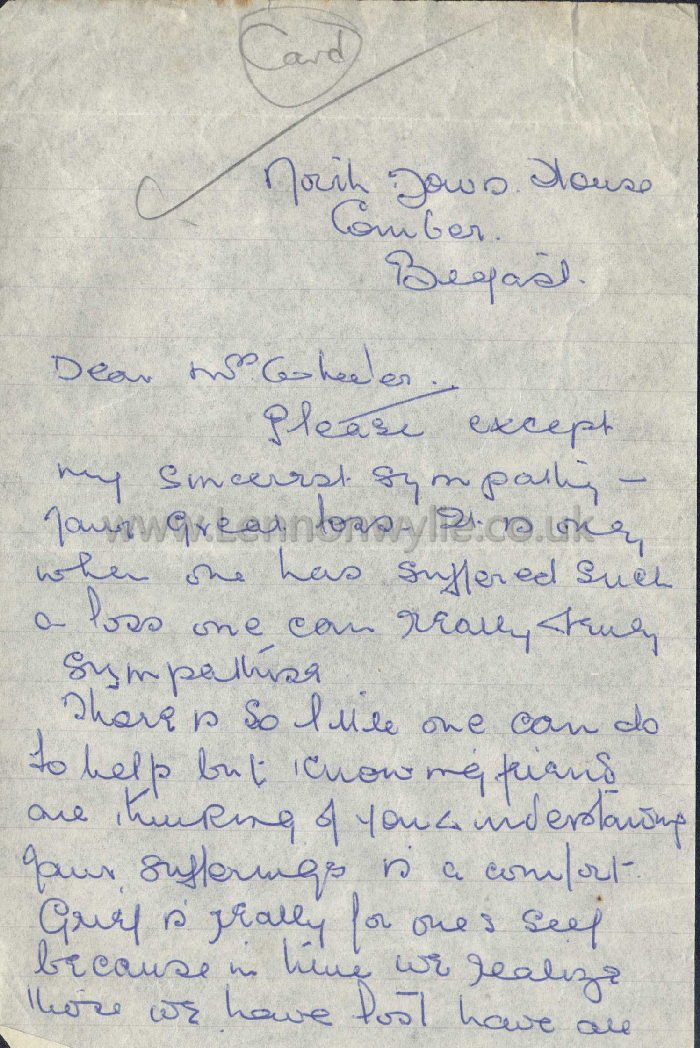 Card
North Down House
Comber.
Belfast.
Dear Mrs
Please except
my sincerest sympathy –
your great loss. It is only
when one has suffered such
a loss one can really & truly
sympathise
There is so little one can do
to help but knowing friends
are thinking of you & understanding
your sufferings is a comfort.
Grief is really for one's self
because in time we realize
those we have lost have all
www.Lennonwylie.co.uk